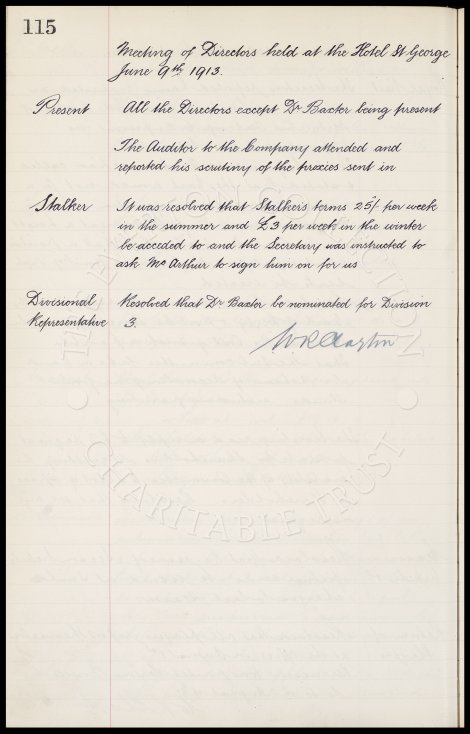 115
Meeting of Directors held at the Hotel St George
June 9th 1913.
Present All the Directors except Dr Baxter being present
The Auditor to the Company attended and
reported his scrutiny of the proxies sent in
Stalker It was resolved that Stalkers terms 25/- per week
in the summer and £3 per week in the winter
be acceded to and the Secretary was instructed to
ask McArthur to sign him on for us
Divisional Resolved that Dr Baxter be nominated for Division
Representative 3.
CHARITABLE TRUST